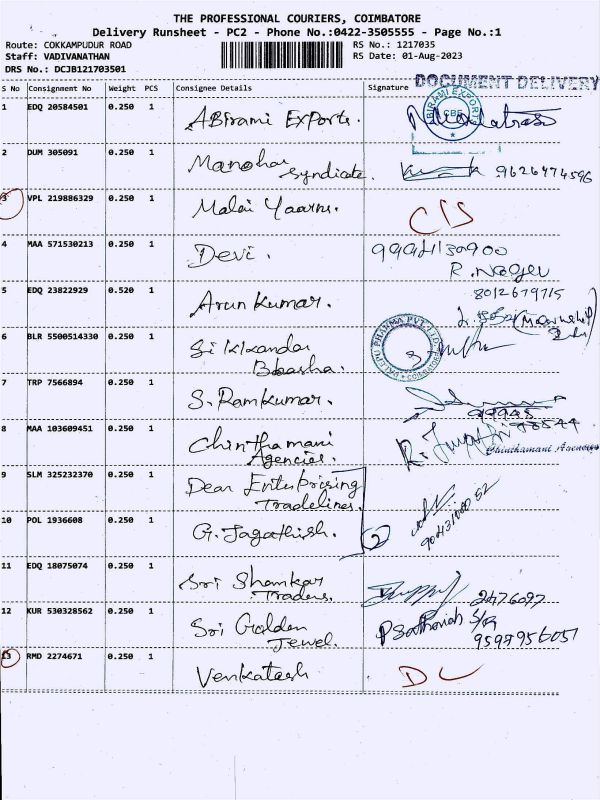 THE PROFESSIONAL COURIERS, COIMBATORE
Delivery Runsheet - PC2 - Phone No.:0422-3505555 - Page No.:1
Route: COKKAMPUDUR ROAD
Staff: VADIVANATHAN
DRS No.: DCJB121703501
RS No.: 1217035
RS Date: 01-Aug-2023
S No Consignment No Weight PCS Consignee Details Signature
DOCUMENT DELIVERY
1 EDQ 20584501 0.250 1 ABirami Exports.
ABIRAMI EXPORTS
CBE
2 DUM 305091 0.250 1 Manohar Syndicate. 9626474596
3 VPL 219886329 0.250 1 Malai Yaarns. C/S
4 MAA 571530213 0.250 1 Devi.
R. Nageu
5 EDQ 23822929 0.520 1 Arun Kumar. 8012679715
6 BLR 5500514330 0.250 1 Sikkandar
Bhasha.
PHARMA PVT. LTD.
COIMBATORE
7 TRP 7566894 0.250 1 S. Ramkumar.
8 MAA 103609451 0.250 1 Chinthamani
Agencies.
Chinthamani Agencies
9 SLM 325232370 0.250 1 Dear Enterprising
Tradelines.
10 POL 1936608 0.250 1 G. Jagathish. 2
11 EDQ 18075074 0.250 1 Sri Shankar
Traders. 2476097
12 KUR 530328562 0.250 1 Sri Golden
Jewel. 9597956057
13 RMD 2274671 0.250 1 Venkatesh DL